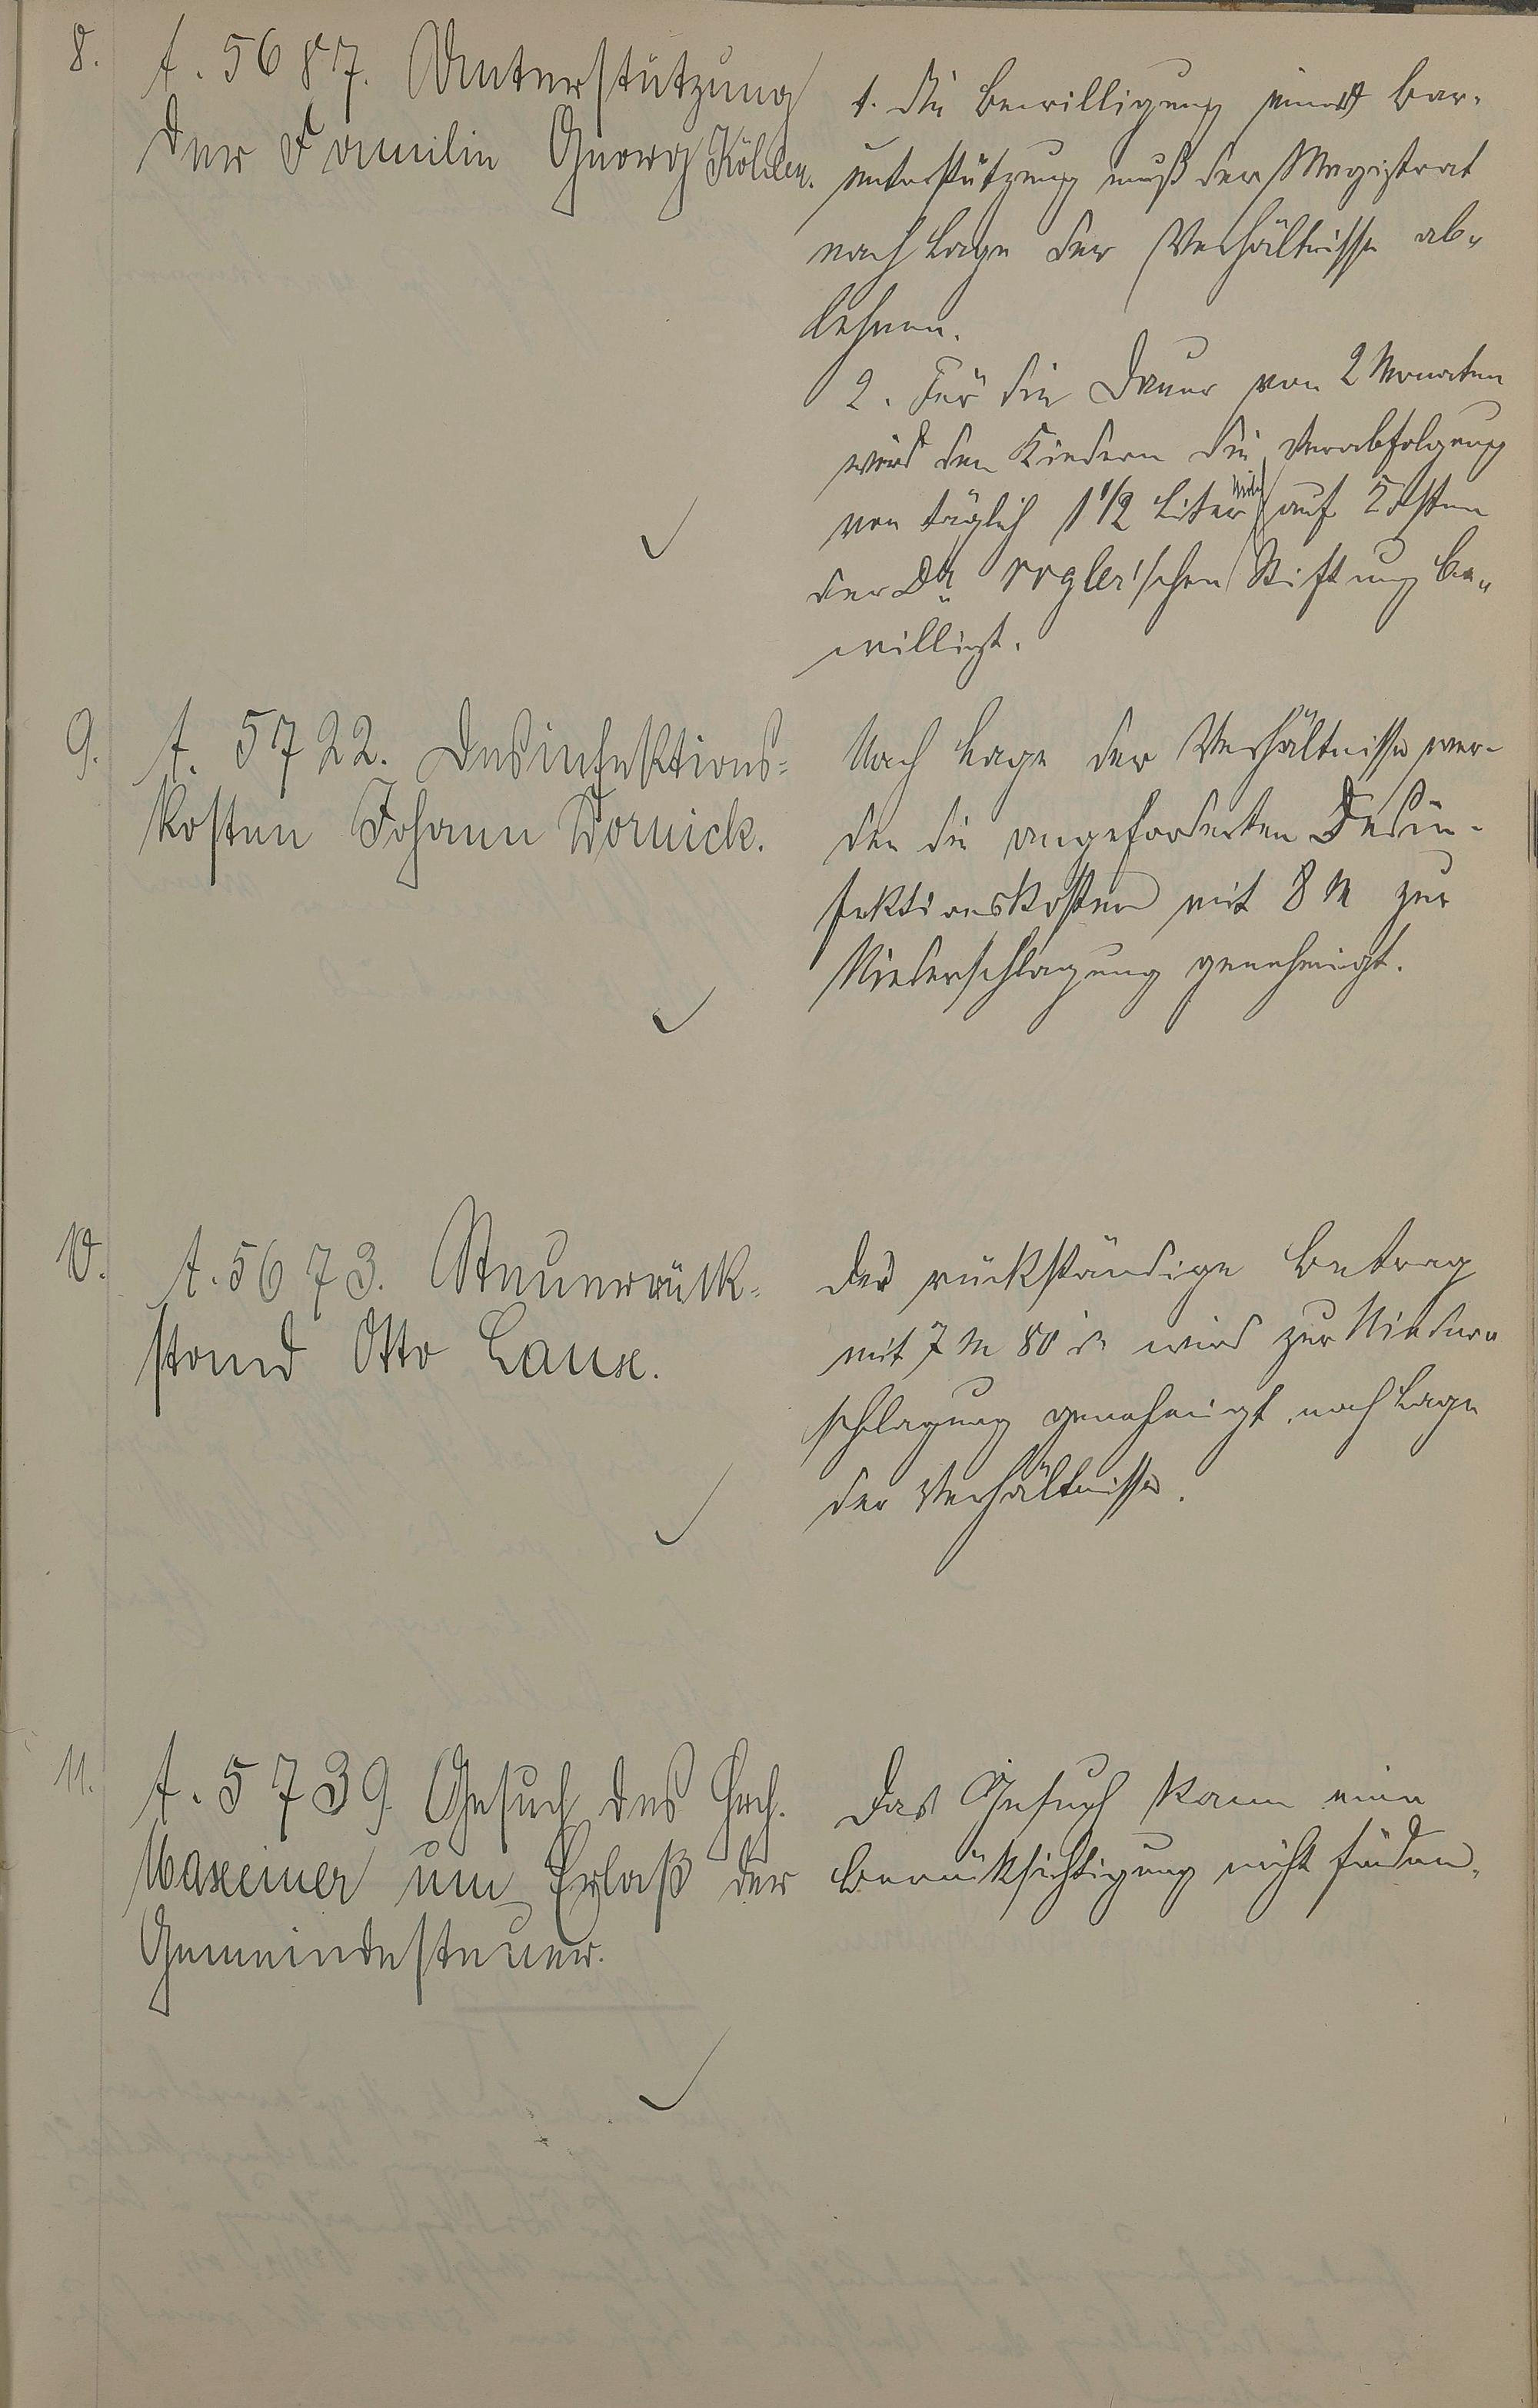 8.
t. 5687. Unterstützung
der Familie Georg Köhler.
1. Die Bewilligung einer Bar-
unterstützung muß der Magistrat
nach Lage der Verhältnisse ab-
lehnen.
2. Für die Dauer von 2 Monaten
wird den Kindern die Verabfolgung
von täglich 1 1/2 Liter Milch auf Kosten
der Dr. Vogler'schen Stiftung be-
willigt.
9.
t. 5722. Desinfektions-
kosten Johann Dornick.
Nach Lage der Verhältnisse wer-
den die angeforderten Desin-
fektionskosten mit 8 M zur
Niederschlagung genehmigt.
10.
t. 5673. Steuerrück-
stand Otto Laux.
Der rückständige Betrag
mit 7 M 80 ₰ wird zur Nieder-
schlagung genehmigt nach Lage
der Verhältnisse.
11.
t. 5739. Gesuch des Hch.
Maxeiner um Erlaß der
Gemeindesteuer.
Das Gesuch kann eine
Berücksichtigung nicht finden.